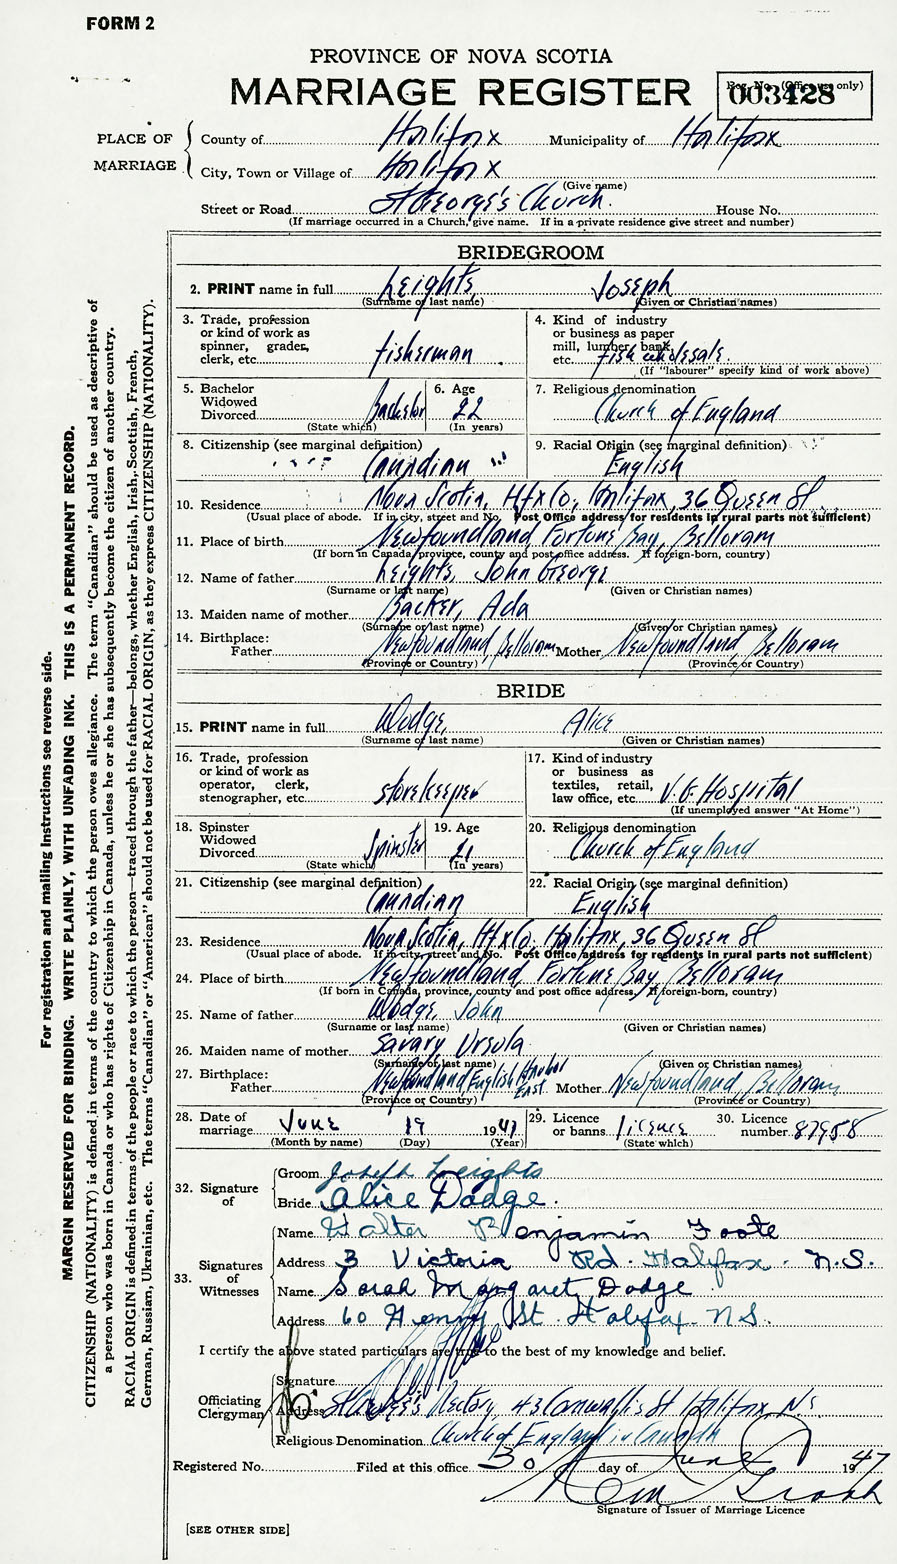 FORM 2
PROVINCE OF NOVA SCOTIA
MARRIAGE REGISTER
Reg. No. (Office use only)
003428
PLACE OF MARRIAGE
County of Halifax Municipality of Halifax
City, Town or Village of Halifax
(Give name)
Street or Road St George's Church. House No.
(If marriage occurred in a Church, give name. If in a private residence give street and number)
BRIDEGROOM
2. PRINT name in full Leights, Joseph
(Surname of last name) (Given or Christian names)
3. Trade, profession or kind of work as spinner, grader, clerk, etc. fisherman
4. Kind of industry or business as paper mill, lumber, bank, etc. fish wholesale.
(If "labourer" specify kind of work above)
5. Bachelor Widowed Divorced Bachelor
(State which)
6. Age 22
(In years)
7. Religious denomination Church of England
8. Citizenship (see marginal definition) Canadian
9. Racial Origin (see marginal definition) English
10. Residence Nova Scotia, Hfx Co, Halifax, 36 Queen St
(Usual place of abode. If in city, street and No. Post Office address for residents in rural parts not sufficient)
11. Place of birth Newfoundland Fortune Bay, Belloram
(If born in Canada, province, county and post office address. If foreign-born, country)
12. Name of father Leights, John George
(Surname or last name) (Given or Christian names)
13. Maiden name of mother Backer, Ada
(Surname or last name) (Given or Christian names)
14. Birthplace: Father Newfoundland, Belloram Mother Newfoundland, Belloram
(Province or Country) (Province or Country)
BRIDE
15. PRINT name in full Dodge, Alice
(Surname of last name) (Given or Christian names)
16. Trade, profession or kind of work as operator, clerk, stenographer, etc. storekeeper
17. Kind of industry or business as textiles, retail, law office, etc. V.G. Hospital
(If unemployed answer "At Home")
18. Spinster Widowed Divorced Spinster
(State which)
19. Age 21
(In years)
20. Religious denomination Church of England
21. Citizenship (see marginal definition) Canadian
22. Racial Origin (see marginal definition) English
23. Residence Nova Scotia, Hfx Co. Halifax, 36 Queen St
(Usual place of abode. If in city, street and No. Post Office address for residents in rural parts not sufficient)
24. Place of birth Newfoundland, Fortune Bay, Belloram
(If born in Canada, province, county and post office address. If foreign-born, country)
25. Name of father Dodge, John
(Surname or last name) (Given or Christian names)
26. Maiden name of mother Savary Ursula
(Surname or last name) (Given or Christian names)
27. Birthplace: Father Newfoundland English Harbor East. Mother Newfoundland, Belloram
(Province or Country) (Province or Country)
28. Date of marriage June 19 1947
(Month by name) (Day) (Year)
29. Licence or banns licence
(State which)
30. Licence number 87958
32. Signature of
Groom Joseph Leights
Bride Alice Dodge.
33. Signatures of Witnesses
Name Walter Benjamin Foote
Address 3 Victoria Rd. Halifax. N.S.
Name Sarah Margaret Dodge
Address 60 Henry St. Halifax N.S.
I certify the above stated particulars are true to the best of my knowledge and belief.
Officiating Clergyman
Signature
Address St George's Rectory, 43 Cornwallis St Halifax, N.S.
Religious Denomination Church of England in Canada
Registered No. Filed at this office 30 day of June 1947
Signature of Issuer of Marriage Licence
[SEE OTHER SIDE]
For registration and mailing instructions see reverse side.
MARGIN RESERVED FOR BINDING. WRITE PLAINLY, WITH UNFADING INK. THIS IS A PERMANENT RECORD.
CITIZENSHIP (NATIONALITY) is defined in terms of the country to which the person owes allegiance. The term "Canadian" should be used as descriptive of
a person who was born in Canada or who has rights of Citizenship in Canada, unless he or she has subsequently become the citizen of another country.
RACIAL ORIGIN is defined in terms of the people or race to which the person—traced through the father—belongs, whether English, Irish, Scottish, French,
German, Russian, Ukrainian, etc. The terms "Canadian" or "American" should not be used for RACIAL ORIGIN, as they express CITIZENSHIP (NATIONALITY).